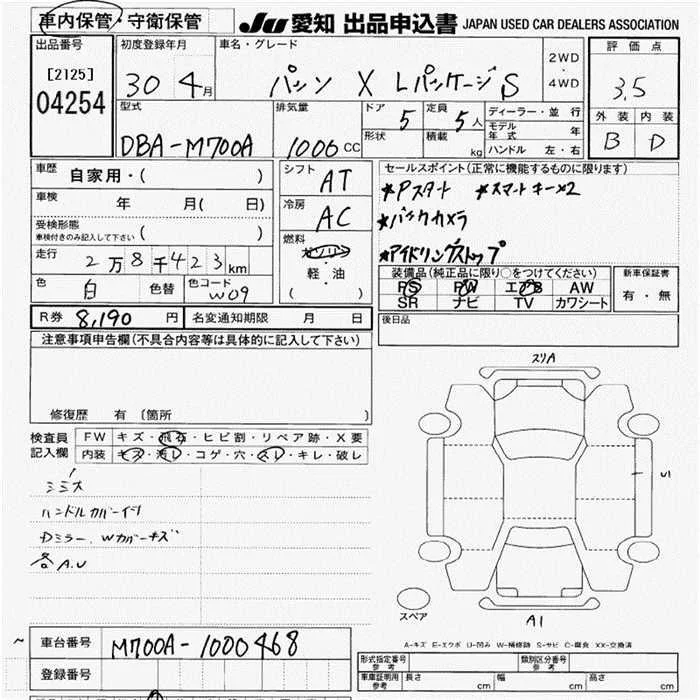 車内保管・守衛保管
JU 愛知 出品申込書 JAPAN USED CAR DEALERS ASSOCIATION
出品番号
[2125]
04254
初度登録年月
30 4月
車名・グレード
パッソ X LパッケージS
2WD
・
4WD
評価点
3.5
外装 内装
B D
型式
DBA-M700A
排気量
1000 CC
ドア 5
定員 5人
形状
積載 kg
ディーラー・並行
モデル年式 年
ハンドル 左・右
車歴
自家用・( )
車検
年 月( 日)
受検形態
車検付きのみ記入して下さい ( )
走行
2万8千423km
色 白 色替 色コード W09
シフト AT
冷房 AC
燃料
ガソリン
・
軽・油
( )
セールスポイント(正常に機能するものに限ります)
*Pスタート *スマートキー×2
*バックカメラ
*アイドリングストップ
装備品(純正品に限り○をつけてください)
PS PW エアB AW
SR ナビ TV カワシート
新車保証書
有・無
R券 8,190 円 名変通知期限 月 日
後日品
注意事項申告欄(不具合内容等は具体的に記入して下さい)
修復歴 有 〔箇所 〕
検査員記入欄
FW キズ・飛石・ヒビ割・リペア跡・X要
内装 キズ・汚レ・コゲ・穴・スレ・キレ・破レ
ミミ大
ハンドルカバー付
Dミラー、Wカバーキズ
各A.U
スリA
U1
A1
スペア
A-キズ E-エクボ U-凹み W-補修跡 S-サビ C-腐食 XX-交換済
~ 車台番号 M700A-1000468
登録番号
形式指定番号 参考
類別区分番号 参考
車庫証明用 参考 長さ cm 幅 cm 高さ cm